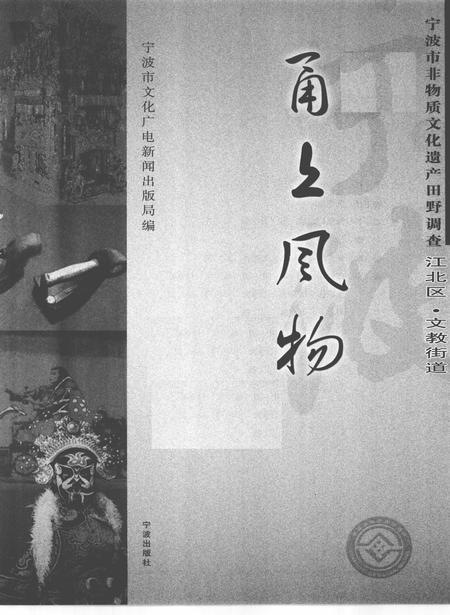 宁波市非物质文化遗产田野调查 江北区·文教街道
甬上风物
宁波市文化广电新闻出版局编
宁波出版社